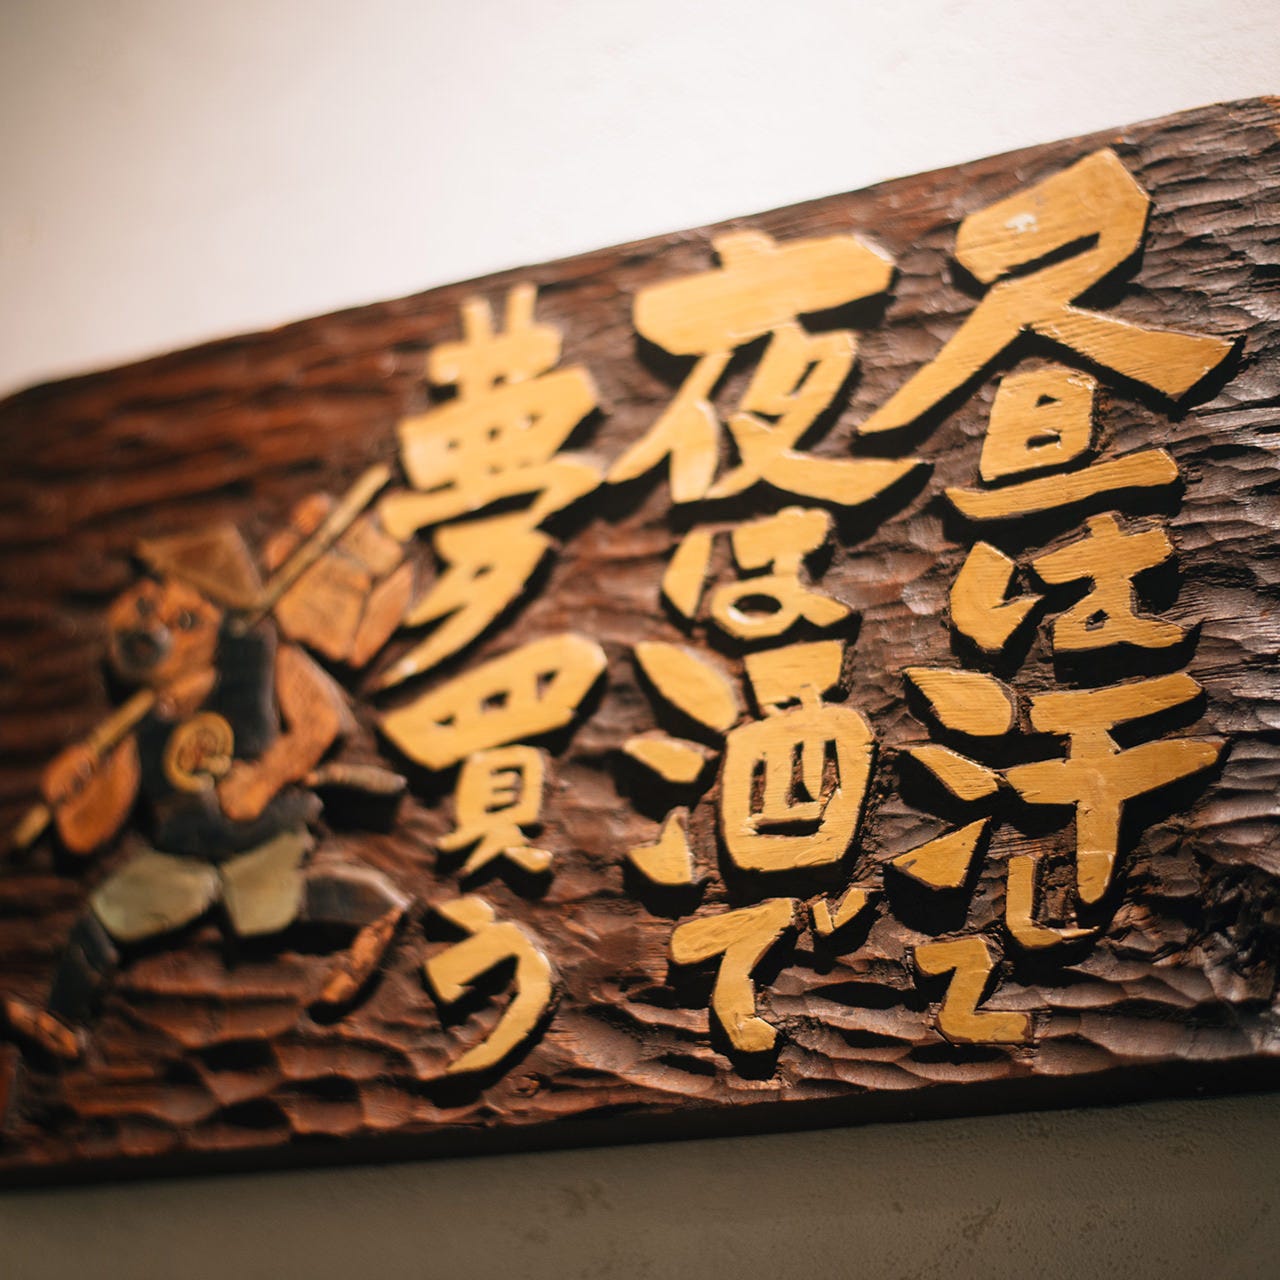 昼は汗して
夜は酒で
夢買う